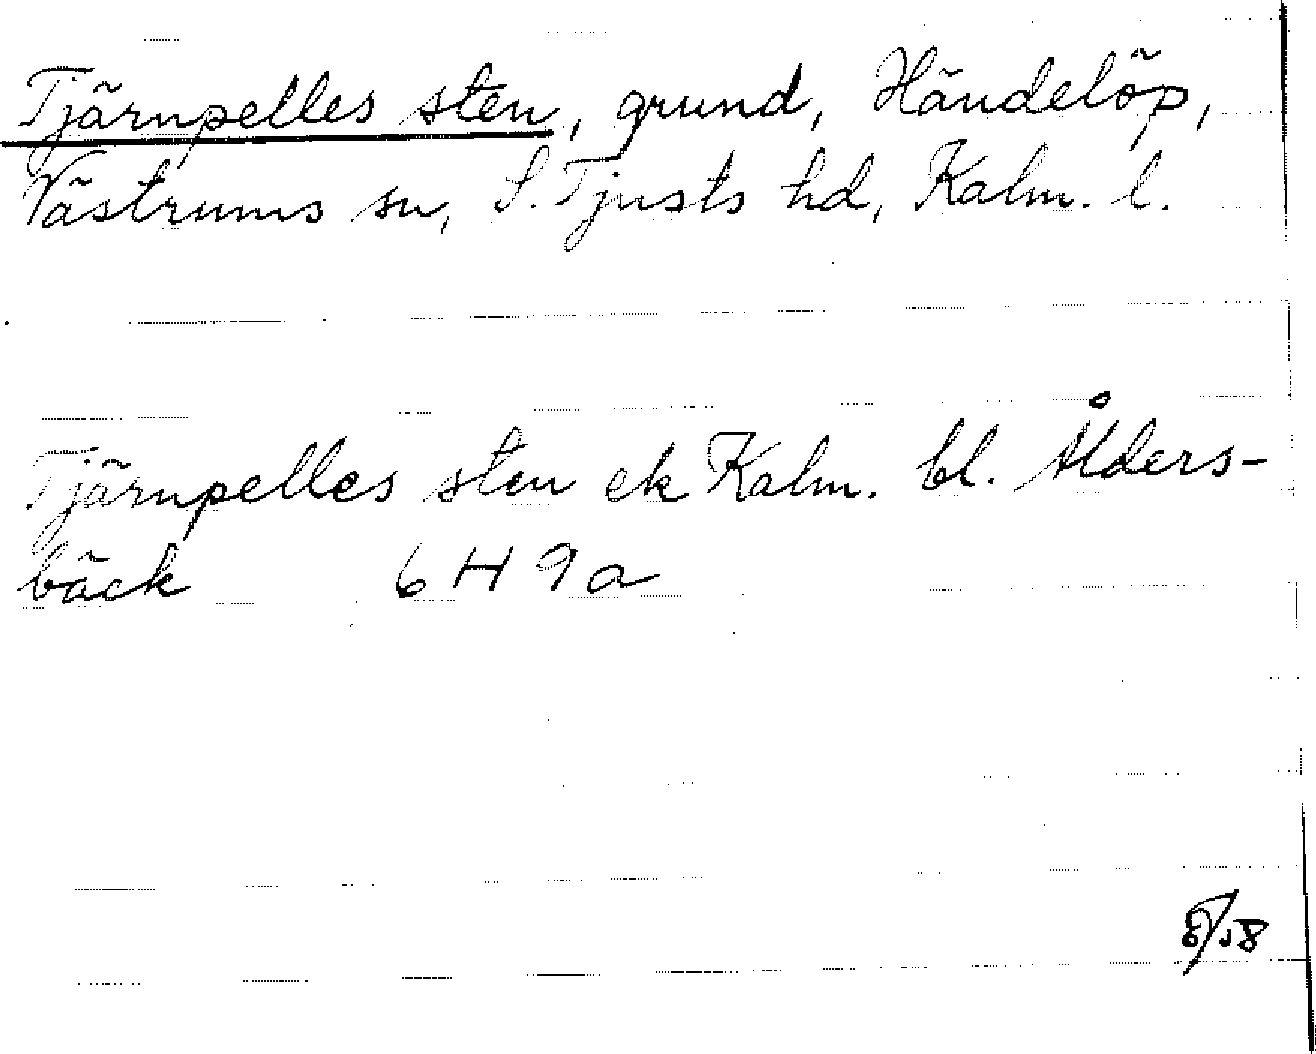 Tjärnpelles sten, grund, Händelöp,
Västrums sn, S. Tjusts hd, Kalm. l.
Tjärnpelles sten ek Kalm. bl. Ålders-
bäck 6 H 9 a